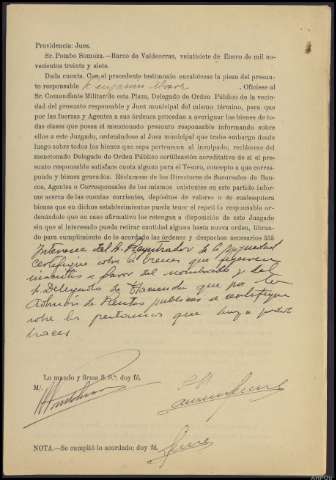 Providencia: Juez.
Sr. Pombo Somoza.—Barco de Valdeorras, veintisiete de Enero de mil no-
vecientos treinta y siete.
Dada cuenta. Con el precedente testimonio encabécese la pieza del presun-
to responsable Benjamin . Ofíciese al
Sr. Comandante Militar de esta Plaza, Delegado de Orden Público de la vecin-
dad del presunto responsable y Juez municipal del mismo término, para que
por las fuerzas y Agentes a sus órdenes proceda a averiguar los bienes de to-
das clases que posea el mencionado responsable informando sobre
ellos a este Juzgado, ordenándose al Juez municipal que trabe embargo desde
luego sobre todos los bienes que sepa pertenecen al inculpado, recíbese del
mencionado Delegado de Orden Público certificación acreditativa de si el pre-
sunto responsable satisface cuota alguna para el Tesoro, concepto a que corres-
ponda y bienes gravados. Reclámese de los Directores de Sucursales de Ban-
cos, Agentes o Corresponsales de los mismos existentes en este partido infor-
me acerca de las cuentas corrientes, depósitos de valores o de cualesquiera
bienes que en dichos establecimientos pueda tener el repetido responsable or-
denándole que en caso afirmativo los retengan a disposición de este Juzgado
sin que el interesado pueda retirar cantidad alguna hasta nueva orden, librán-
dose para cumplimiento de lo acordado las órdenes y despachos necesarios
del Sr. Registrador de la propiedad
certifique sobre los bienes que figuren
inscritos a favor del nombrado y del
Sr. Delegado de Hacienda que por la
Admón de Rentas publicas se certifique
sobre
Lo mandó y firma S. S.ª: doy fé.
M.
NOTA.—Se cumplió lo acordado: doy fé.